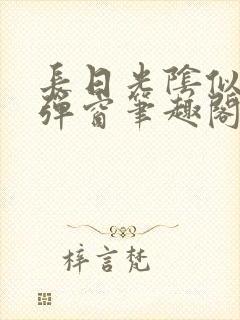 長日光陰似
彈窗筆趣閣
梓言梵